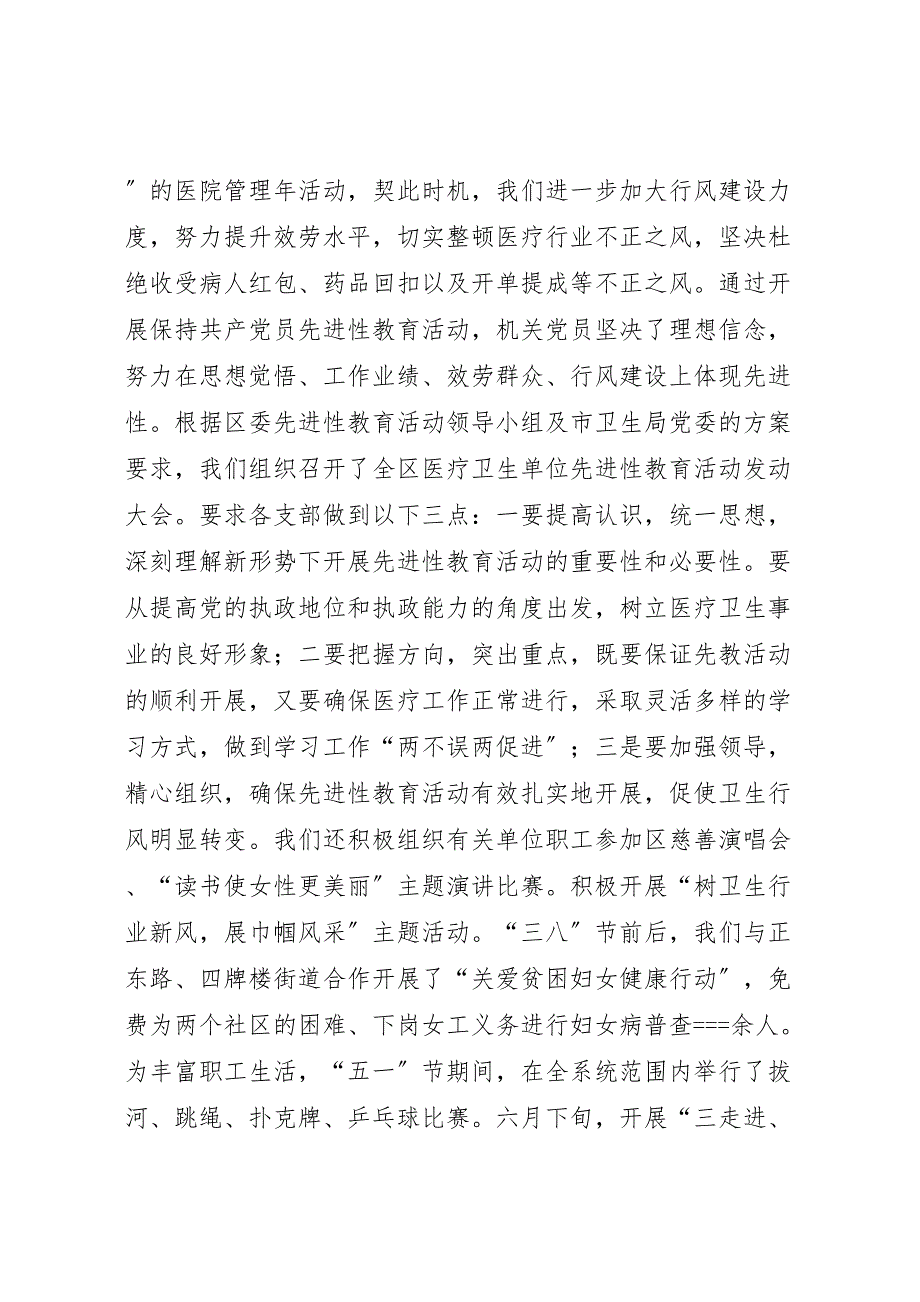 〞的医院管理年活动，契此时机，我们进一步加大行风建设力
度，努力提升效劳水平，切实整顿医疗行业不正之风，坚决杜
绝收受病人红包、药品回扣以及开单提成等不正之风。通过开
展保持共产党员先进性教育活动，机关党员坚决了理想信念，
努力在思想觉悟、工作业绩、效劳群众、行风建设上体现先进
性。根据区委先进性教育活动领导小组及市卫生局党委的方案
要求，我们组织召开了全区医疗卫生单位先进性教育活动发动
大会。要求各支部做到以下三点：一要提高认识，统一思想，
深刻理解新形势下开展先进性教育活动的重要性和必要性。要
从提高党的执政地位和执政能力的角度出发，树立医疗卫生事
业的良好形象；二要把握方向，突出重点，既要保证先教活动
的顺利开展，又要确保医疗工作正常进行，采取灵活多样的学
习方式，做到学习工作“两不误两促进〞；三是要加强领导，
精心组织，确保先进性教育活动有效扎实地开展，促使卫生行
风明显转变。我们还积极组织有关单位职工参加区慈善演唱会
、“读书使女性更美丽〞主题演讲比赛。积极开展“树卫生行
业新风，展巾帼风采〞主题活动。“三八〞节前后，我们与正
东路、四牌楼街道合作开展了“关爱贫困妇女健康行动〞，免
费为两个社区的困难、下岗女工义务进行妇女病普查===余人。
为丰富职工生活，“五一〞节期间，在全系统范围内举行了拔
河、跳绳、扑克牌、乒乓球比赛。六月下旬，开展“三走进、